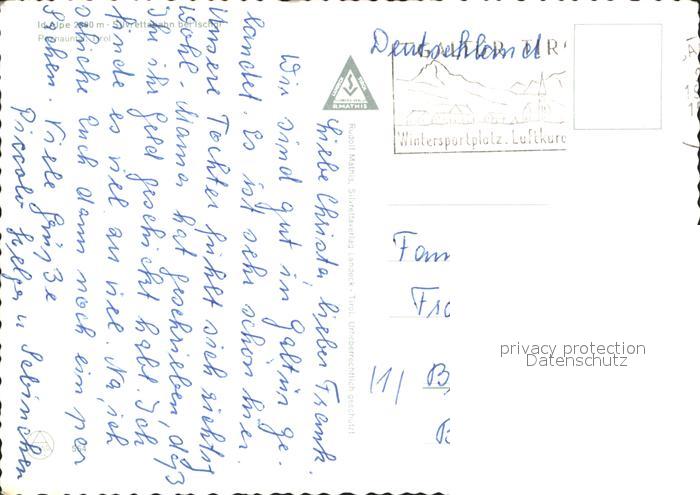 Id Alpe 2300 m - Silvrettabahn bei Ischgl
Paznauntal, Tirol
Liebe Christa, lieber Frank.
Wir sind gut in Galtür ge-
landet. Es ist sehr schön hier.
Unsere Tochter fühlt sich richtig
wohl. Mama hat geschrieben, daß
Ihr ihr Geld geschickt habt. Ich
finde es viel zu viel. Na, ich
schicke Euch dann noch ein par
Sachen. Viele Grüße
Piccolo Helga u Sabinchen
R. MATHIS
Rudolf Mathis, Silvrettaverlag Landeck - Tirol. Urheberrechtlich geschützt
Deutschland
GALTÜR TIR
Wintersportplatz. Luftkuro
Fam
Fra
/1/ B
B
privacy protection
Datenschutz